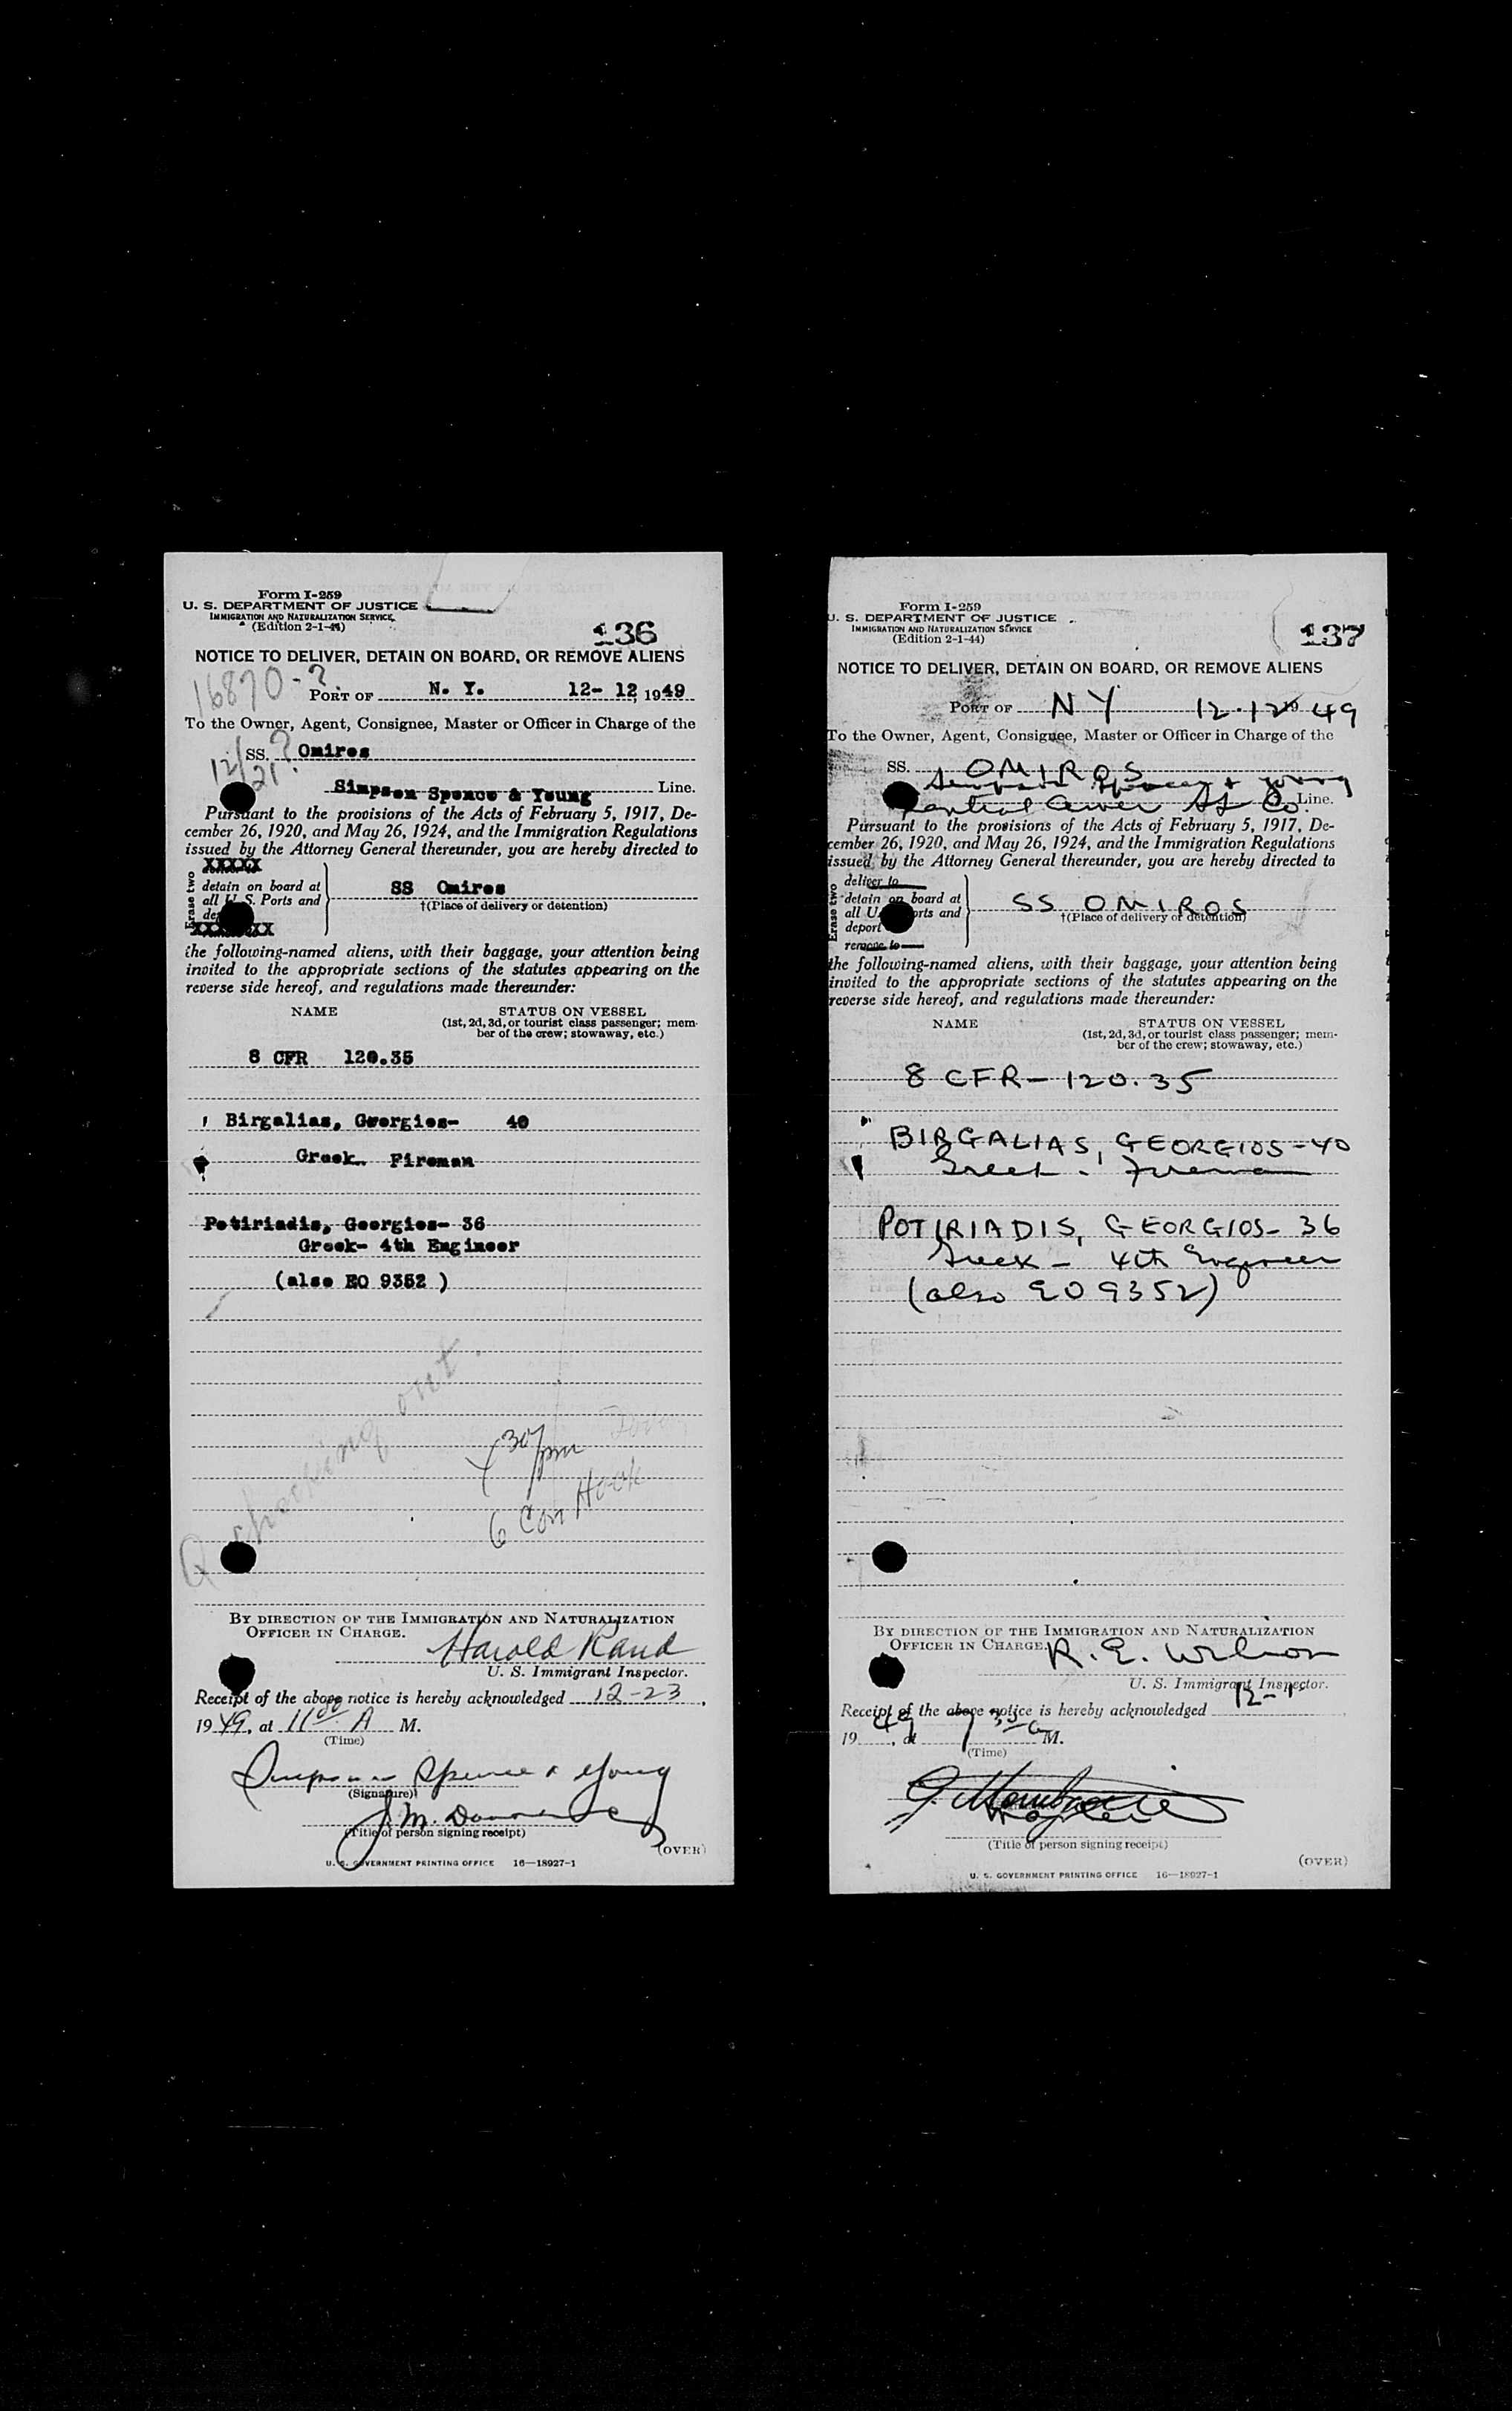 Form I-259
U. S. DEPARTMENT OF JUSTICE
IMMIGRATION AND NATURALIZATION SERVICE
(Edition 2-1-44)
136
NOTICE TO DELIVER, DETAIN ON BOARD, OR REMOVE ALIENS
16870-?
PORT OF N. Y. 12- 12, 1949
To the Owner, Agent, Consignee, Master or Officer in Charge of the
SS. Omiros
12/21?
Simpson Spence & Young Line.
Pursuant to the provisions of the Acts of February 5, 1917, De-
cember 26, 1920, and May 26, 1924, and the Immigration Regulations
issued by the Attorney General thereunder, you are hereby directed to
XXXXX
Erase two
detain on board at
all U. S. Ports and
SS Omiros
†(Place of delivery or detention)
the following-named aliens, with their baggage, your attention being
invited to the appropriate sections of the statutes appearing on the
reverse side hereof, and regulations made thereunder:
NAME STATUS ON VESSEL
(1st, 2d, 3d, or tourist class passenger; mem-
ber of the crew; stowaway, etc.)
8 CFR 120.35
Birgalias, Georgios- 40
Greek. Fireman
Potiriadis, Georgios- 36
Greek- 4th Engineer
(also EO 9352 )
checking out.
30/pm
6 Con Hook
BY DIRECTION OF THE IMMIGRATION AND NATURALIZATION
OFFICER IN CHARGE.
Harold Rand
U. S. Immigrant Inspector.
Receipt of the above notice is hereby acknowledged 12-23,
1949, at 11 00 A M.
(Time)
Simpson Spence & Young
(Signature)
J. M.
(Title of person signing receipt)
(OVER)
U. S. GOVERNMENT PRINTING OFFICE 16—18927-1
Form I-259
U. S. DEPARTMENT OF JUSTICE
IMMIGRATION AND NATURALIZATION SERVICE
(Edition 2-1-44)
137
NOTICE TO DELIVER, DETAIN ON BOARD, OR REMOVE ALIENS
PORT OF N Y 12.12 19 49
To the Owner, Agent, Consignee, Master or Officer in Charge of the
SS. OMIROS
Simpson Spence & Young
Line.
Pursuant to the provisions of the Acts of February 5, 1917, De-
cember 26, 1920, and May 26, 1924, and the Immigration Regulations
issued by the Attorney General thereunder, you are hereby directed to
Erase two
deliver to
detain on board at
all U. S. Ports and
deport
remove to
SS OMIROS
†(Place of delivery or detention)
the following-named aliens, with their baggage, your attention being
invited to the appropriate sections of the statutes appearing on the
reverse side hereof, and regulations made thereunder:
NAME STATUS ON VESSEL
(1st, 2d, 3d, or tourist class passenger; mem-
ber of the crew; stowaway, etc.)
8 CFR- 120.35
BIRGALIAS, GEORGIOS-40
Greek. Fireman
POTIRIADIS, GEORGIOS- 36
Greek - 4th Engineer
(also EO 9352)
BY DIRECTION OF THE IMMIGRATION AND NATURALIZATION
OFFICER IN CHARGE.
R. E. Wilson
U. S. Immigrant Inspector.
Receipt of the above notice is hereby acknowledged 12-
1949, at M.
(Time)
(Title of person signing receipt)
(OVER)
U. S. GOVERNMENT PRINTING OFFICE 16—18927-1